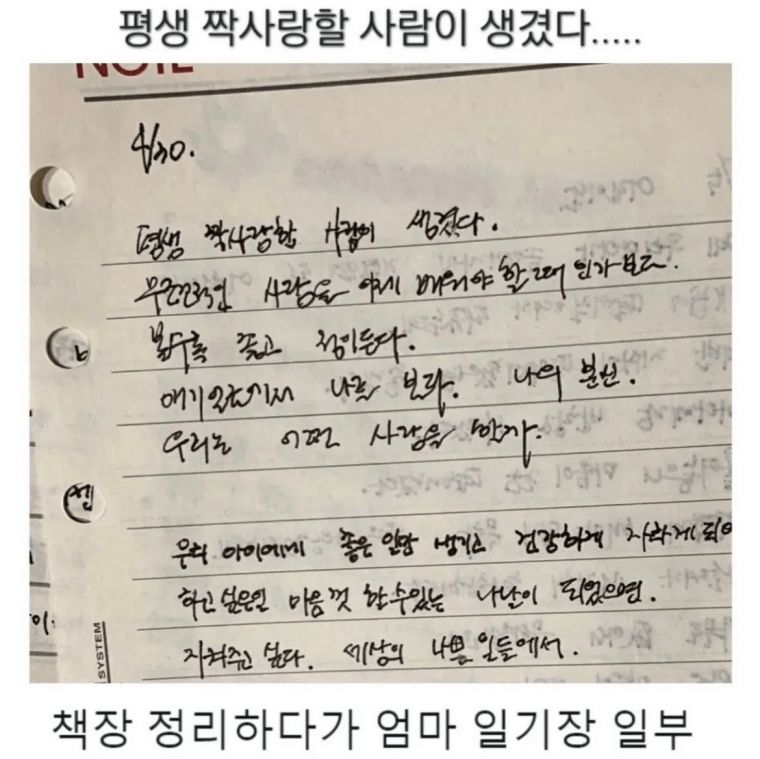 평생 짝사랑할 사람이 생겼다.....
NOTE
4/30.
평생 짝사랑할 사람이 생겼다.
무조건적인 사랑을 이제 배워야 할 때 인가보다.
볼수록 좋고 정이든다.
나를 본다. 나의 분신.
우리는 어떤 사랑을 할까.
우리 아이에게 좋은 일만 생기고 건강하게 자라게 되어
하고 싶은일 마음껏 할수있는 나날이 되었으면.
지켜주고 싶다. 세상의 나쁜 일들에서.
SYSTEM
책장 정리하다가 엄마 일기장 일부